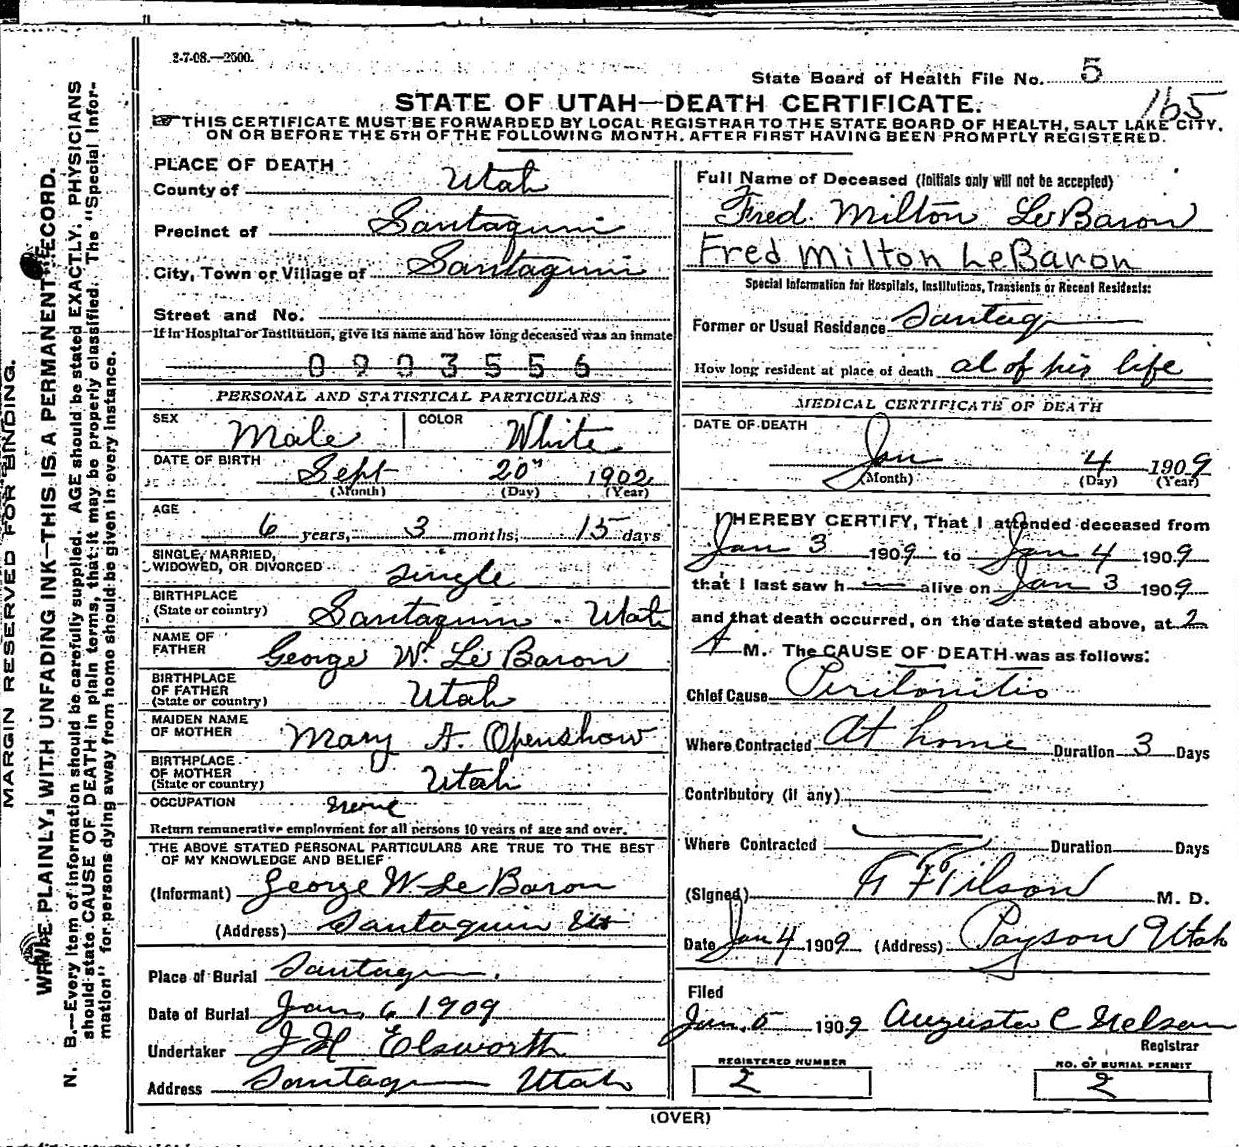 2-7-08.—2500.
State Board of Health File No. 5
165
STATE OF UTAH—DEATH CERTIFICATE.
THIS CERTIFICATE MUST BE FORWARDED BY LOCAL REGISTRAR TO THE STATE BOARD OF HEALTH, SALT LAKE CITY,
ON OR BEFORE THE 5TH OF THE FOLLOWING MONTH, AFTER FIRST HAVING BEEN PROMPTLY REGISTERED.
PLACE OF DEATH
County of Utah
Precinct of Santaquin
City, Town or Village of Santaquin
Street and No.
If in Hospital or Institution, give its name and how long deceased was an inmate
0903556
PERSONAL AND STATISTICAL PARTICULARS
SEX Male COLOR White
DATE OF BIRTH Sept 20" 1902
(Month) (Day) (Year)
AGE
6 years, 3 months, 15 days
SINGLE, MARRIED,
WIDOWED, OR DIVORCED single
BIRTHPLACE
(State or country) Santaquin Utah
NAME OF
FATHER George W. Le Baron
BIRTHPLACE
OF FATHER
(State or country) Utah
MAIDEN NAME
OF MOTHER Mary A. Openshow
BIRTHPLACE
OF MOTHER
(State or country) Utah
OCCUPATION none
Return remunerative employment for all persons 10 years of age and over.
THE ABOVE STATED PERSONAL PARTICULARS ARE TRUE TO THE BEST
OF MY KNOWLEDGE AND BELIEF
(Informant) George W. Le Baron
(Address) Santaquin Ut
Place of Burial Santaqu
Date of Burial Jan 6 1909
Undertaker J H Elsworth
Address Santaqu Utah
Full Name of Deceased (Initials only will not be accepted)
Fred. Milton LeBaron
Fred Milton LeBaron
Special Information for Hospitals, Institutions, Transients or Recent Residents:
Former or Usual Residence Santaq
How long resident at place of death al of his life
MEDICAL CERTIFICATE OF DEATH
DATE OF DEATH
Jan 4 1909
(Month) (Day) (Year)
I HEREBY CERTIFY, That I attended deceased from
Jan 3 1909 to Jan 4 1909
that I last saw h alive on Jan 3 1909
and that death occurred, on the date stated above, at 2
A M. The CAUSE OF DEATH was as follows:
Chief Cause Peritonitis
Where Contracted At home Duration 3 Days
Contributory (if any)
Where Contracted Duration Days
(Signed) Tilson M. D.
Date Jan 4 1909 (Address) Payson Utah
Filed
Jan. 5 1909 Augusta C Nelson
Registrar
REGISTERED NUMBER
2
NO. OF BURIAL PERMIT
2
(OVER)
MARGIN RESERVED FOR BINDING.
WRITE PLAINLY, WITH UNFADING INK—THIS IS A PERMANENT RECORD.
N. B.—Every item of information should be carefully supplied. AGE should be stated EXACTLY. PHYSICIANS
should state CAUSE OF DEATH in plain terms, that it may be properly classified. The "Special Infor-
mation" for persons dying away from home should be given in every instance.